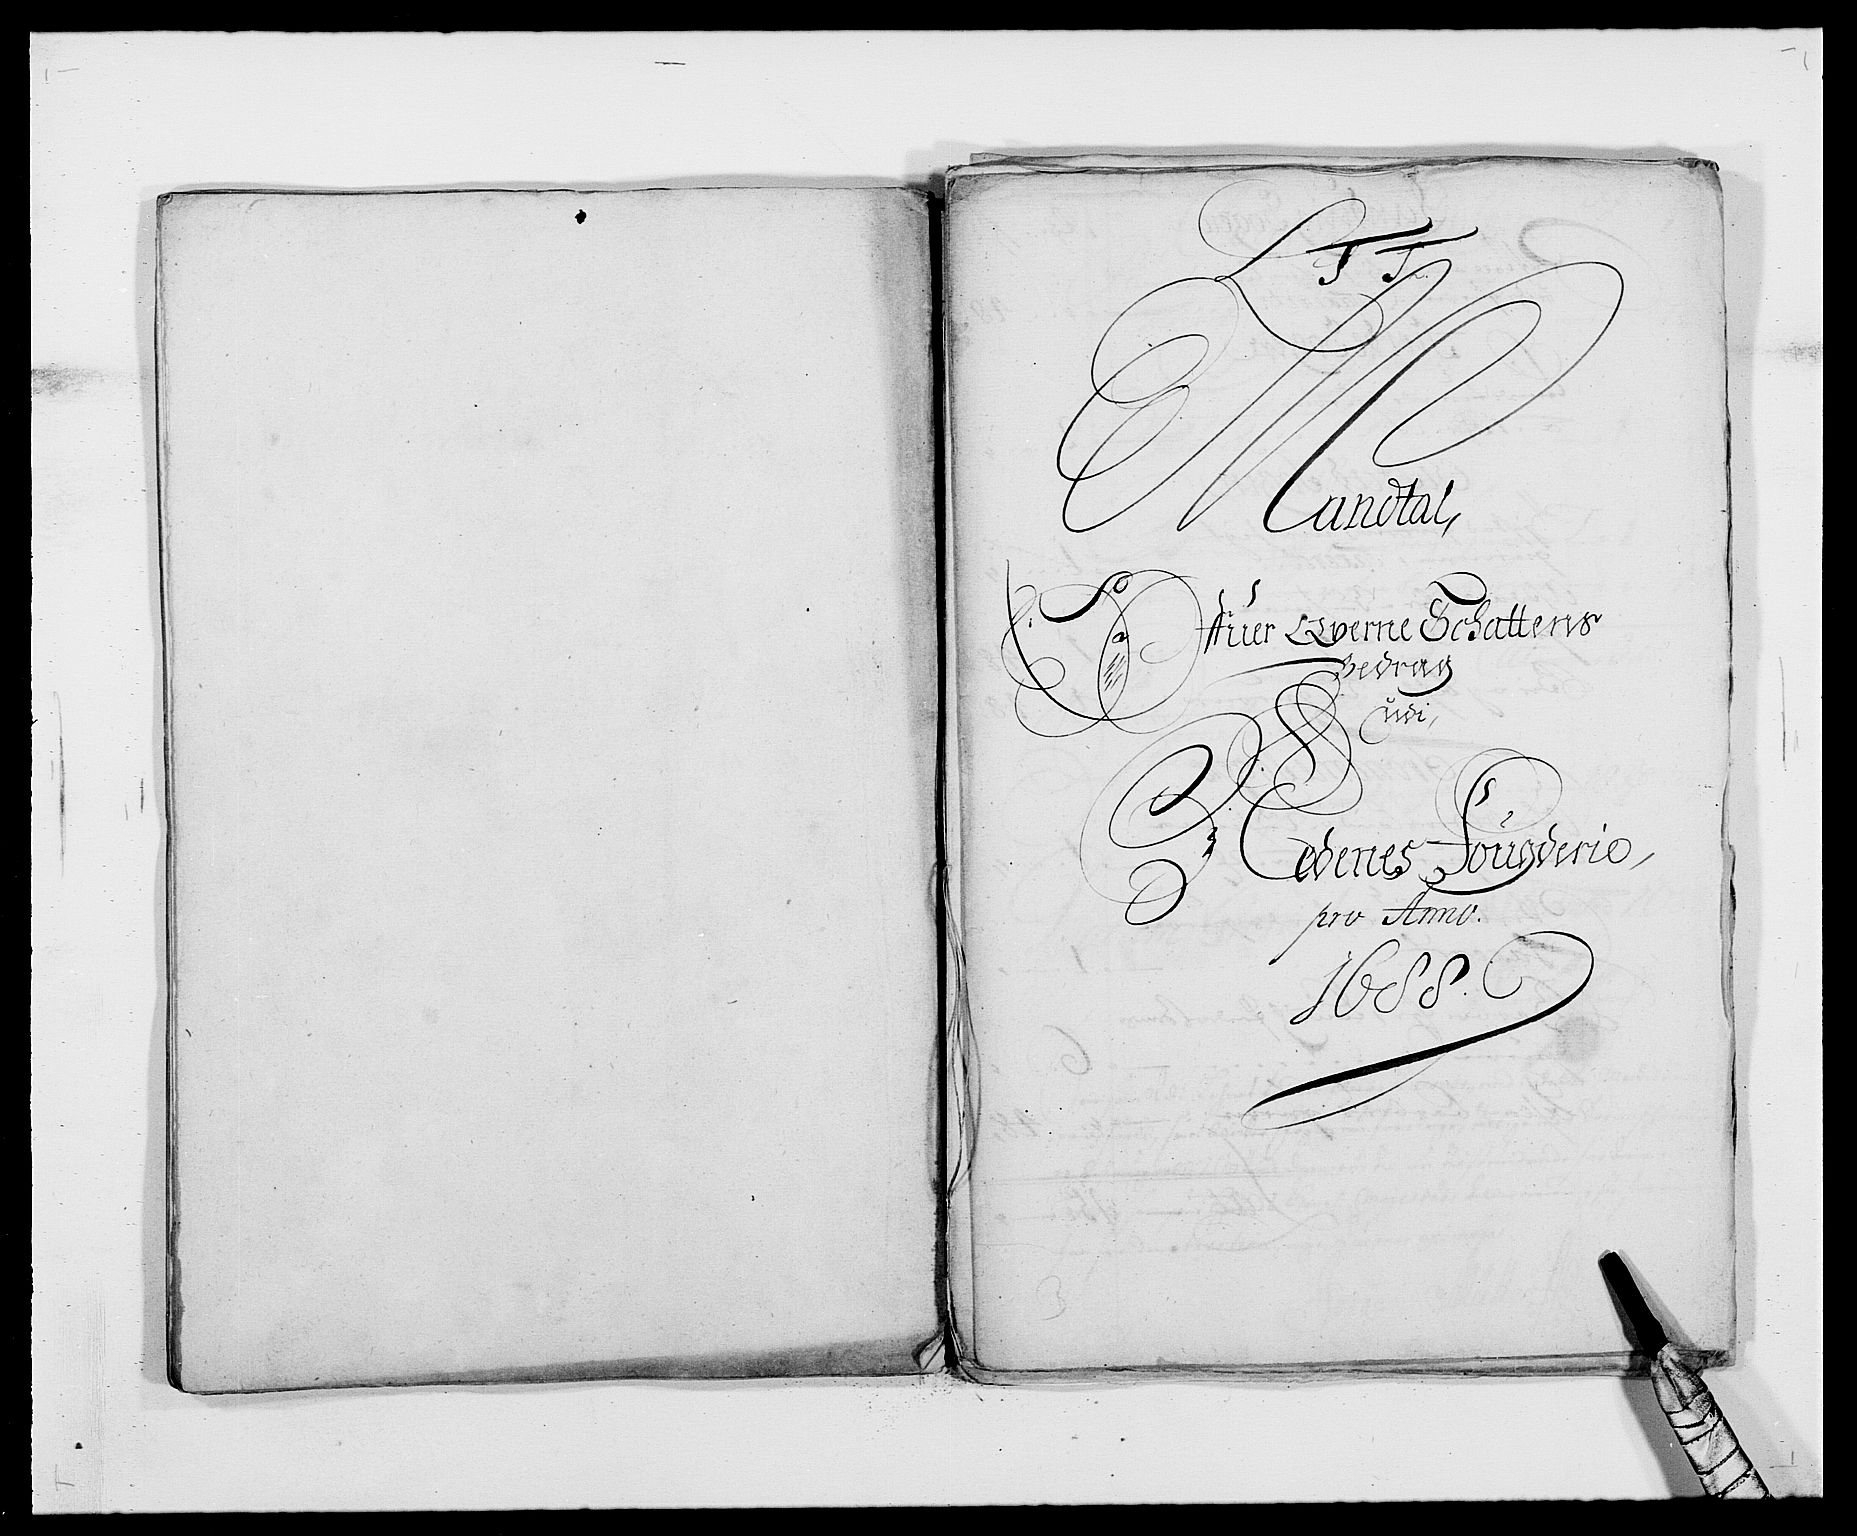 Mandtal,
Ofuer Qverne Schattens
bedrag
udi,
Nedenes Fougderie,
pro Anno.
1688.